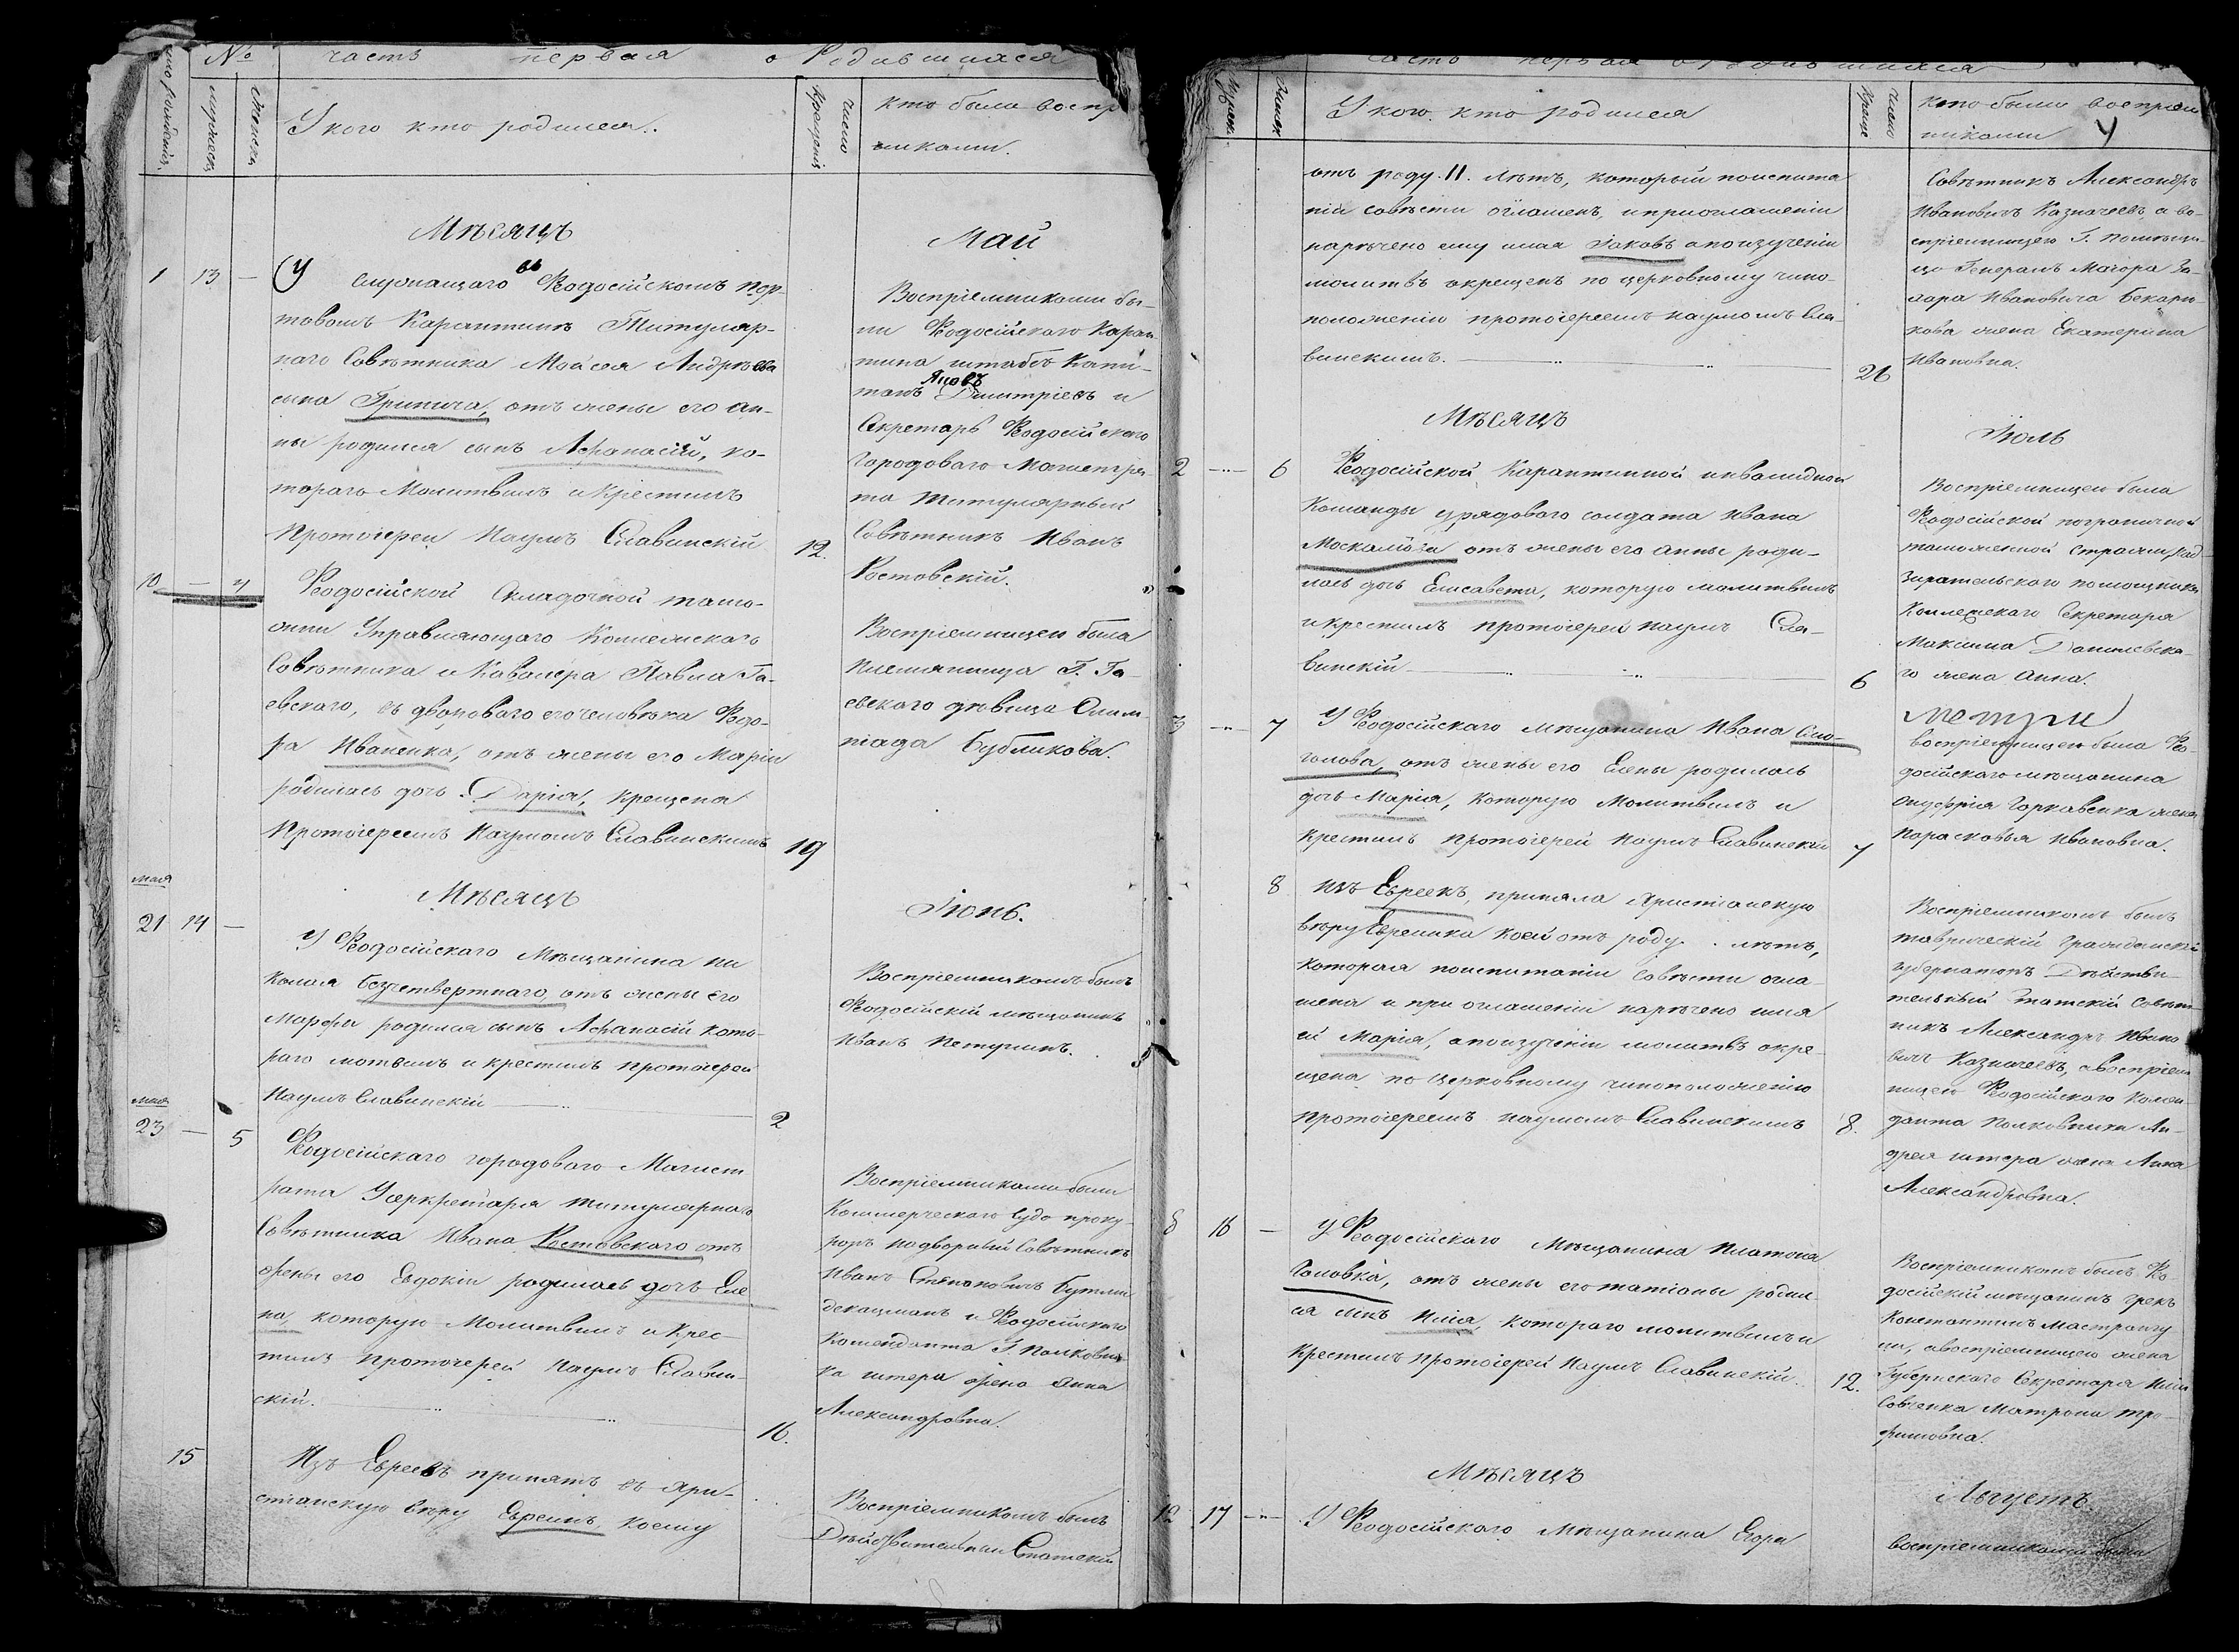 № часть первая о Родившихся
Мужеск.
Женск.
У кого кто родился.
число
крещенія
кто были воспр
никами.
Мѣсяцъ Май
1 13 —
У служащаго въ Ѳеодосійскомъ пор-
товомъ Карантинѣ Титуляр-
наго Совѣтника Моѵсея Андрѣева
сына Грипича, отъ жены его Ан-
ны родился сынъ Аѳанасій, ко-
тораго Молитвилъ и крестилъ
Протоіерей Наумъ Славинскій 12.
Воспріемниками бы-
ли Ѳеодосійскаго Каран-
тина штабсъ Капи-
танъ Яковъ Дмитріевъ и
Секретарь Ѳеодосійскаго
Городоваго Магистра-
та Титулярный
Совѣтникъ Иванъ
Ростовскій.
10 — 4
Ѳеодосійской Складочной тамо-
жни Управляющаго Коллежскаго
Совѣтника и Кавалера Павла Га-
евскаго, съ двороваго его человѣка Ѳедо-
ра Иваненка, отъ жены его Маріи
родилась дочь Дарія, крещена
Протоіереемъ Наумомъ Славинскимъ 19
Воспріемницею была
племянница Г. Га-
евскаго дѣвица Олим-
піада Бубликова.
Мѣсяцъ Іюнь.
мая
21 14 —
У Ѳеодосійскаго Мѣщанина Ни
колая Безчетвертнаго, отъ жены его
Марѳы родился сынъ Аѳанасій кото-
раго мотвилъ и крестилъ протоіерей
Наумъ Славинскій 2
Воспріемникомъ былъ
Ѳеодосійскій мѣщанинъ
Иванъ Петулинъ.
мая
23 — 5
Ѳеодосійскаго городоваго Магист
рата Секретаря титулярнаго
Совѣтника Ивана Ростовскаго отъ
жены его Евдокіи родилась дочь Еле
на, которую Молитвилъ и Крес-
тилъ Протоіерей Наумъ Славин-
скій. 16.
Воспріемниками были
Коммерческаго Суда проку-
роръ надворный Совѣтникъ
Иванъ Степановичъ
и Ѳеодосійскаго
Коменданта Г. Полковни-
ка штера жена Анна
Александровна.
15
Изъ Евреевъ принятъ въ Хри-
стіанскую вѣру Евреинъ, коему
Воспріемникомъ былъ
Дѣйствительный Статскій
часть первая о Родившихся
Мужеск.
Женск.
У кого кто родился
число
креще
кто были воспріем
никами
4
отъ роду 11. лѣтъ, который поиспыта
ніи совѣсти оглашенъ, и приоглашеніи
наречено ему имя Іаковъ, а поизученіи
молитвъ окрещенъ по церковному чино-
положенію протоіереемъ Наумомъ Сла-
винскимъ. 26
Совѣтникъ Александръ
Ивановичъ Казначеевъ, а во-
спріемницею Г. помѣщи-
ца Генералъ Маіора За-
хара Ивановича Бекарю-
кова жена Екатерина
Ивановна.
Мѣсяцъ Іюль
2 — 6
Ѳеодосійской Карантинной инвалидной
Команды у рядоваго солдата Ивана
Москалева отъ жены его Анны роди-
лась дочь Елисавета, которую молитвилъ
и крестилъ протоіерей Наумъ Сла-
винскій 6
Воспріемницею была
Ѳеодосійской пограничной
таможенной стражи, над
зирательскаго помощника
Коллежскаго Секретаря
Максима Данилевска-
го жена Анна.
3 — 7
У Ѳеодосійскаго мѣщанина Ивана Сло-
голова, отъ жены его Елены родилась
дочь Марія, которую Молитвилъ и
крестилъ протоіерей Наумъ Славинскій 7
воспріемницею была Ѳео-
досійскаго мѣщанина
Онуфрія Горкавенка жена
Парасковья Ивановна.
5 8
Изъ Евреекъ, приняла Христіанскую
вѣру Еврейка коей отъ роду . лѣтъ,
которая поиспытаніи совѣсти огла-
шена и при оглашеніи наречено имя
ей Марія, а поизученіи молитвъ окре-
щена по церковному чиноположенію
протоіереемъ Наумомъ Славинскимъ 8.
Воспріемникомъ былъ
таврическій гражданскій
губернаторъ Дѣйстви-
тельный статскій Совѣт
никъ Александръ Ивано
вичъ Казначеевъ, а воспріем
ницею Ѳеодосійскаго комен-
данта Полковника Ан-
дрея штера жена Анна
Александровна.
8 16 —
У Ѳеодосійскаго Мѣщанина Платона
Головка, отъ жены его татіаны роди-
ся сынъ Илія, котораго молитвилъ и
крестилъ протоіерей Наумъ Славинскій. 12.
Воспріемникомъ былъ Ѳео-
досійскій мѣщанинъ грекъ
Константинъ
а воспріемницею жена
Губернскаго Секретаря Иліи
Савченка Матрона Тро-
фимовна.
Мѣсяцъ Августъ
12 17 —
У Ѳеодосійскаго Мѣщанина Егора
воспріемниками были